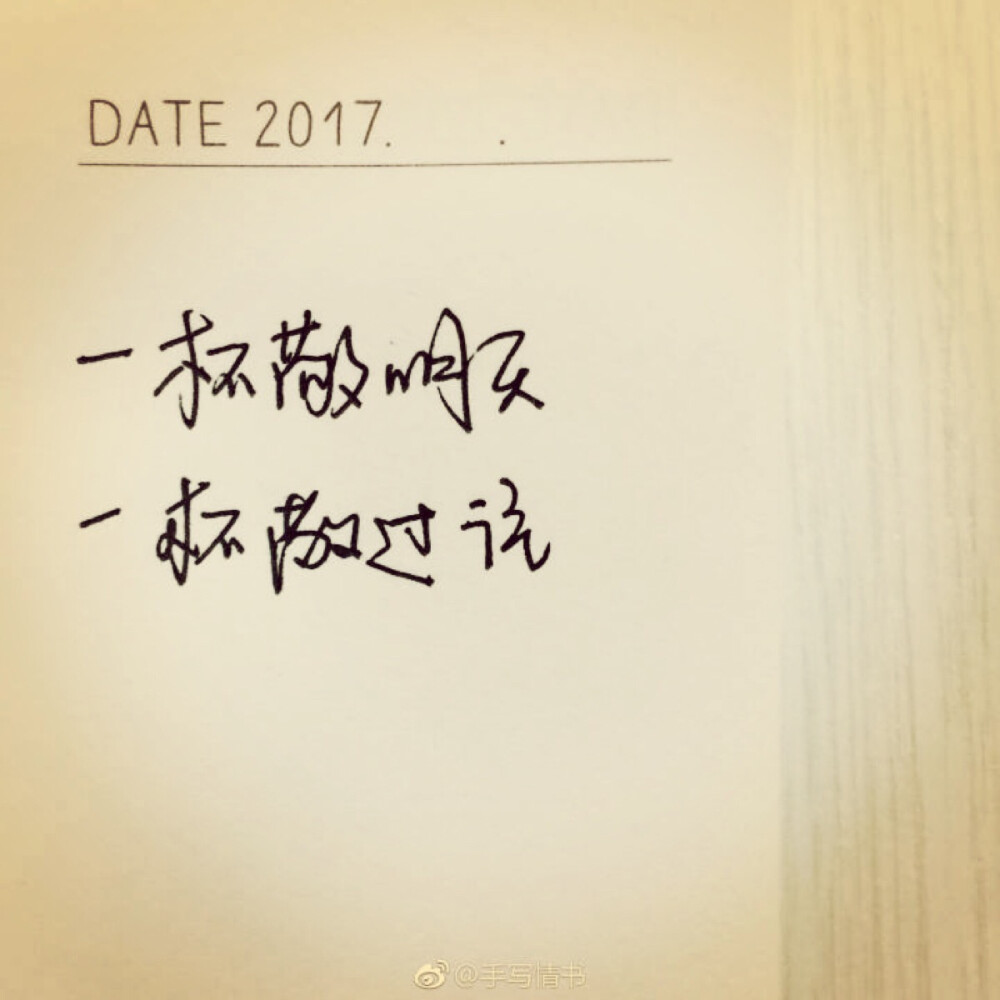 DATE 2017. .
一杯敬明天
一杯敬过往
@手写情书